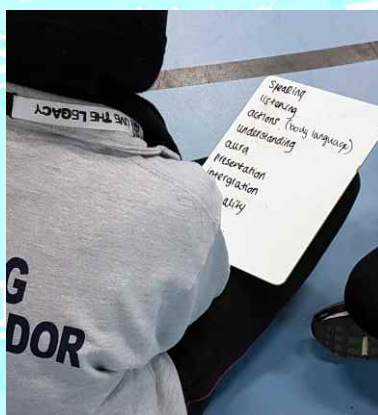 LIVE THE LEGACY
Speaking
listening
actions (body language)
understanding
aura
presentation
intergration
ality
G
DOR